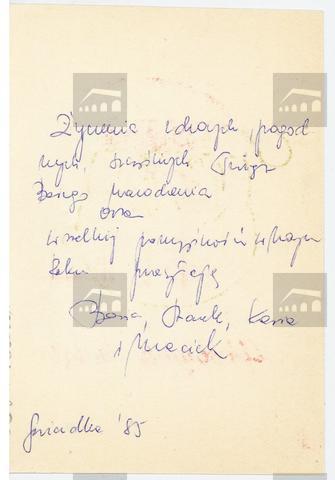 Życzenia zdrowych, pogod
nych, szczęśliwych Świąt
Bożego Narodzenia
oraz
wszelkiej pomyślności w Nowym
Roku przesyłają
Kasia
i Maciek
Gwiazdka '85